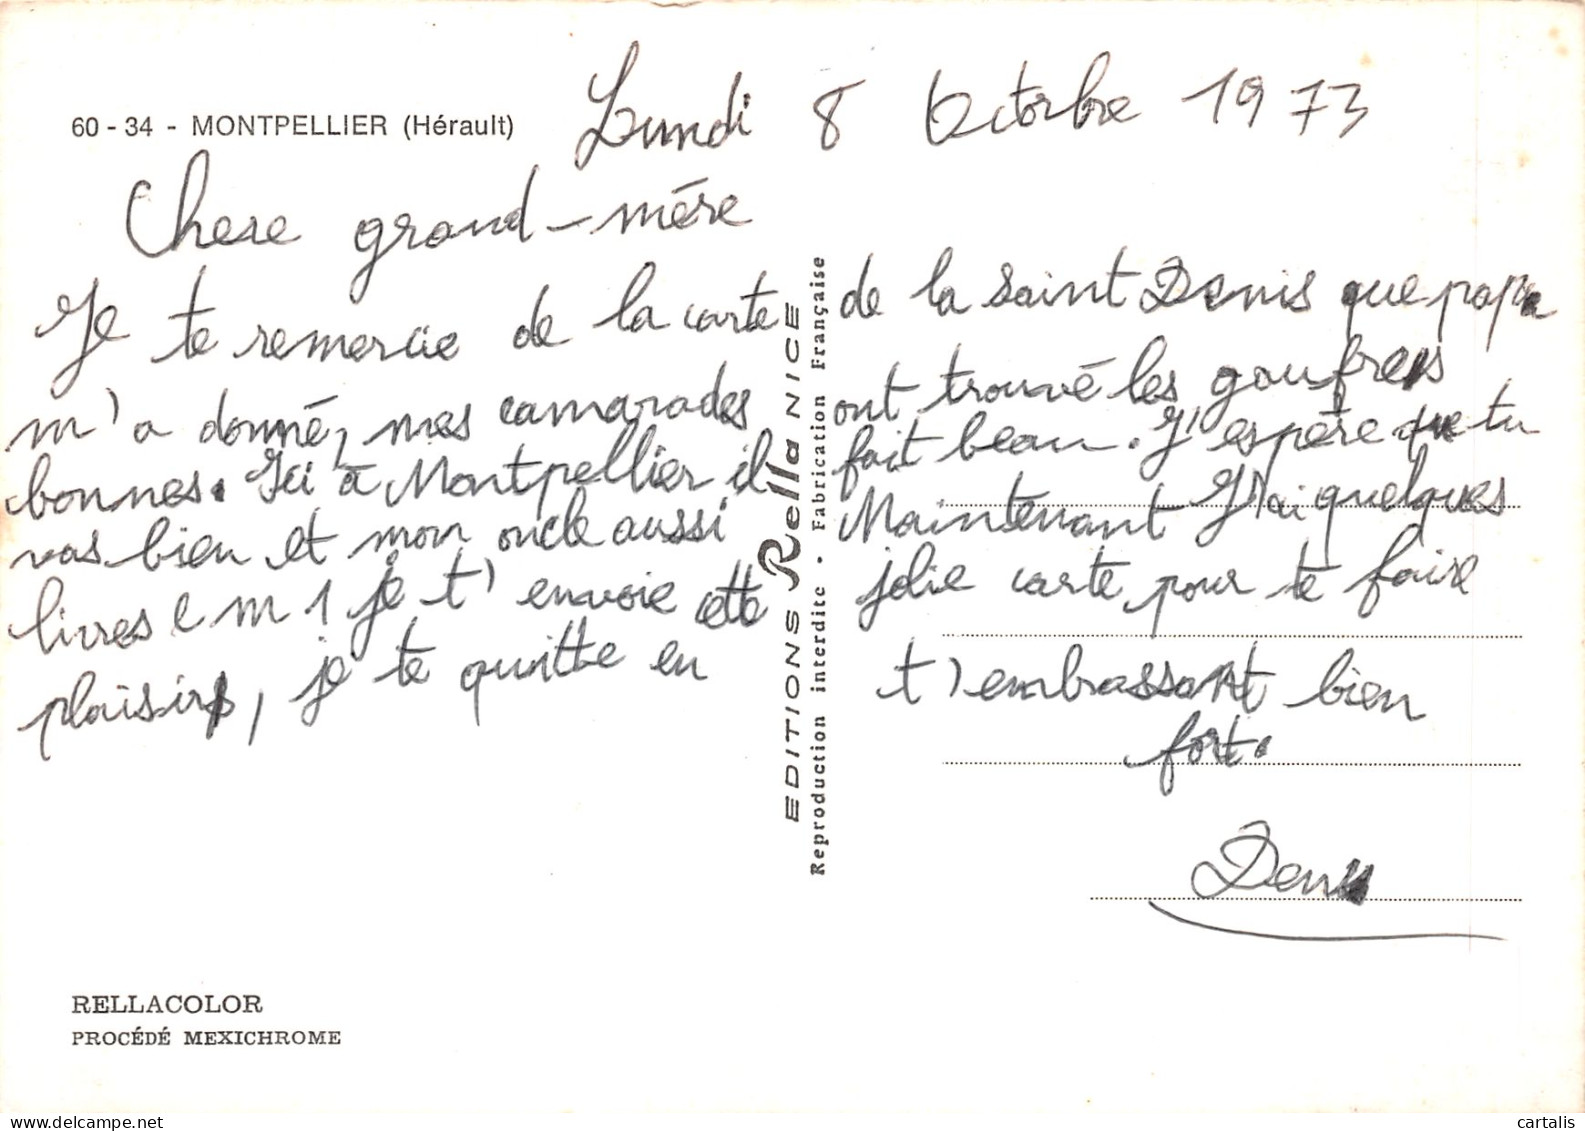 60 - 34 - MONTPELLIER (Hérault)
Lundi 8 Octorbre 1973
Chere grand-mére
Je te remercie de la carte de la Saint Denis que papa
m'a donné, mes camarades ont trouvé les gaufres
bonnes. Ici à Montpellier il fait beau. J'espère que tu
vas bien et mon oncle aussi Maintenant J'ai quelques
livres e m 1 je t'envoie cette jolie carte pour te faire
plaisir, je te quitte en t'embrassant bien
fort.
Denis
EDITIONS Rella NICE
Reproduction interdite • Fabrication Française
RELLACOLOR
PROCÉDÉ MEXICHROME
cartalis